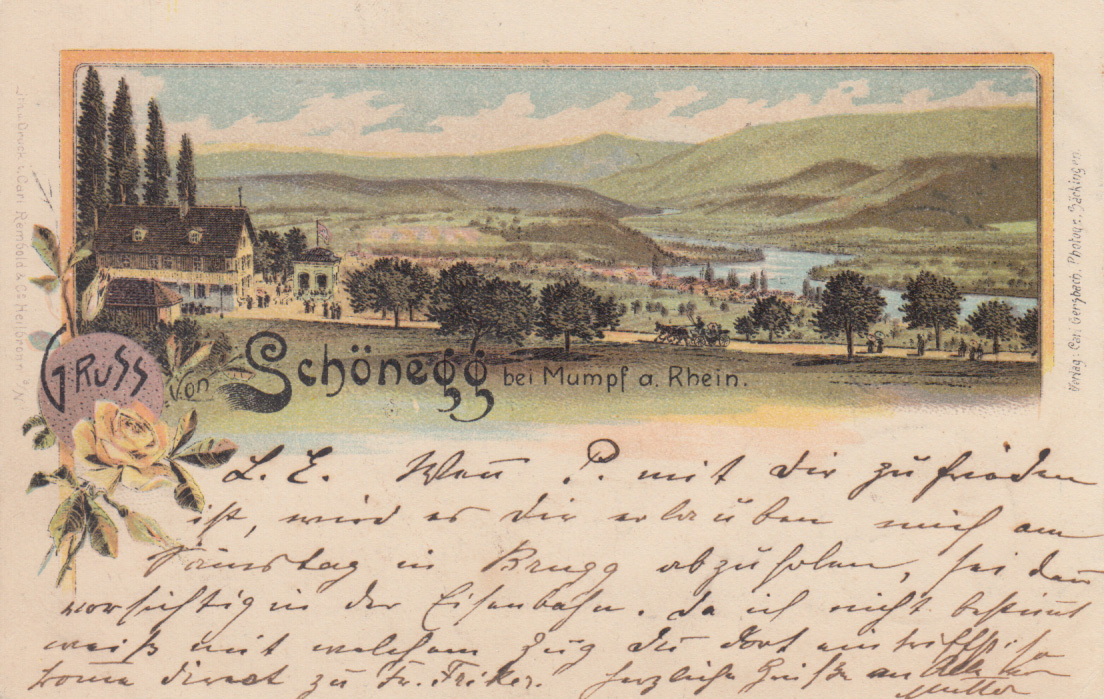 GRUSS
von Schönegg bei Mumpf a. Rhein.
Verlag: Carl Gersbach, Photogr. Säckingen.
Druck v. Carl Rembold & Cº Heilbronn a/N.
L. E. Wen P. mit dir zufrieden
ist, wird es dir erlauben mich am
Samstag in Brugg abzuholen, sei dann
vorsichtig in der Eisenbahn. Da ich nicht bestimt
weiß mit welchem Zug du dort eintriffst, so
kome direct zu Fr. Fricker. herzliche Grüße an Alle
Mutter